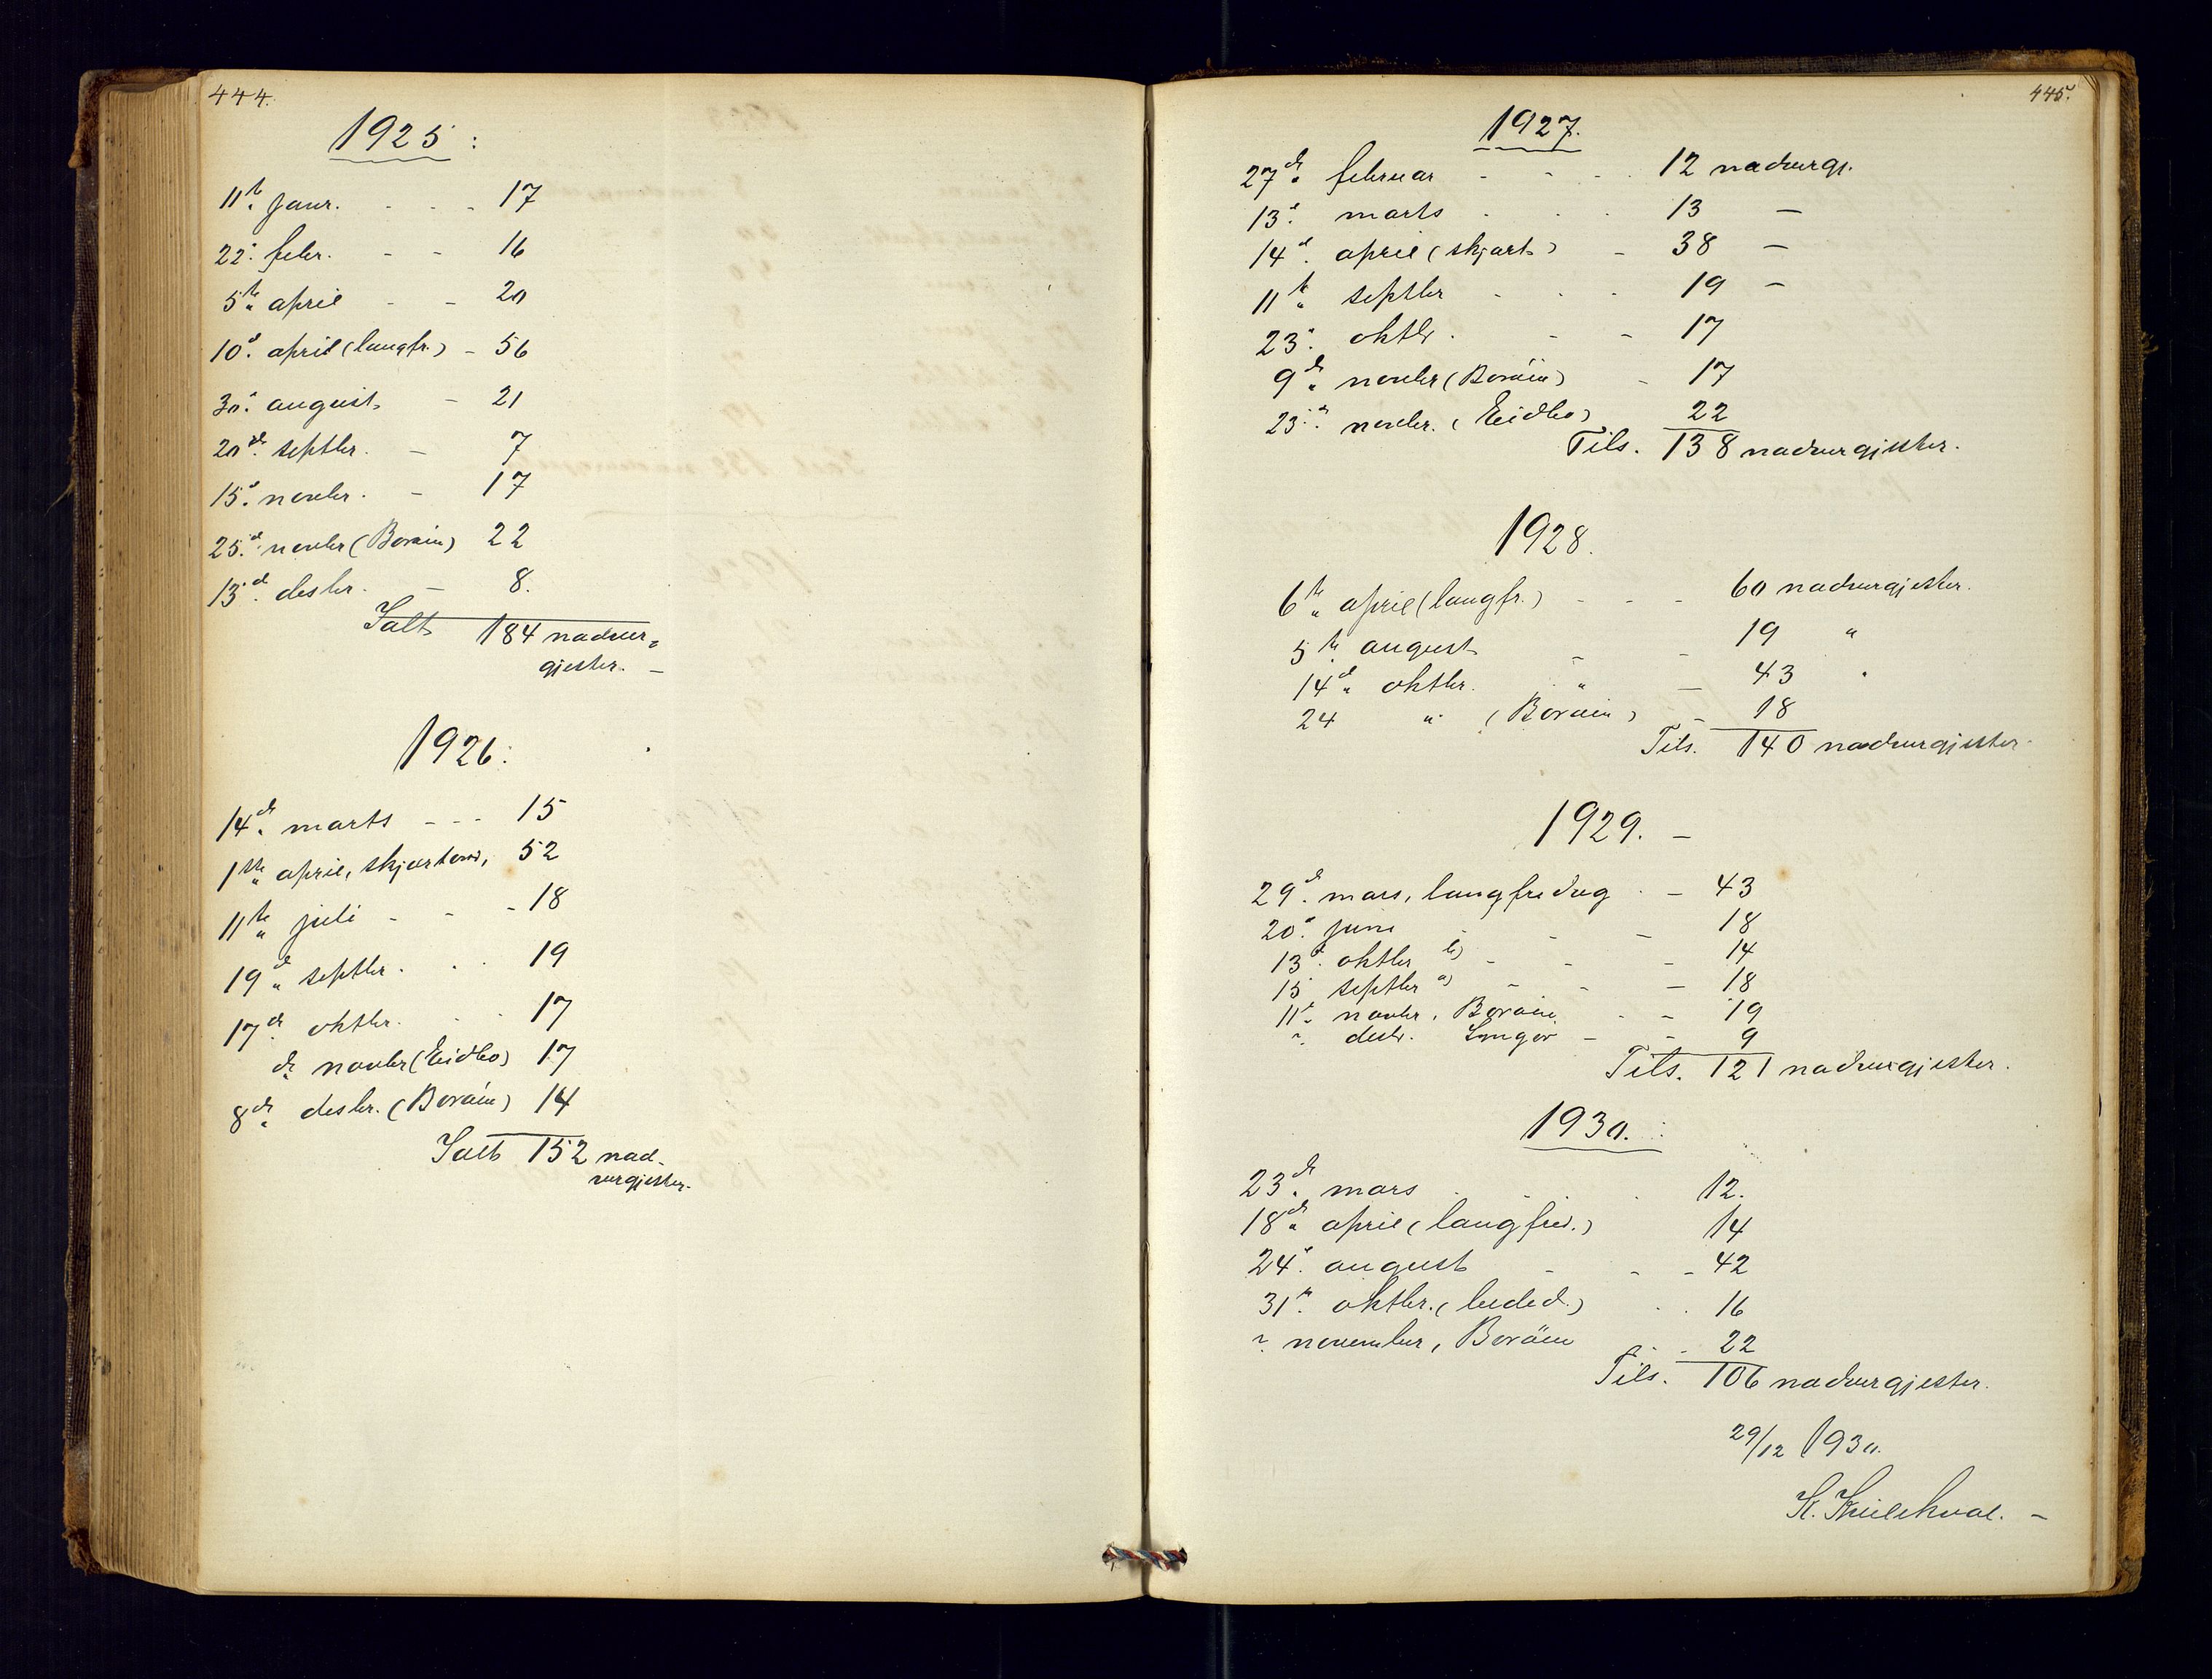 444.
1925:
11te janr. - - - 17
22. febr. - - 16
5te april - - 20
10d. april (langfr.) - 56
30. august - 21
20de septbr. - 7
15d. novbr. - 17
25d. novbr (Boråin) 22
13d. desbr. - 8.
Ialt 184 nadver=
gjester. -
1926:
14de marts - - - 15
1ste april, skjærtorsd, 52
11te juli - - - 18
19d septbr. . . 19
17de oktbr. . . 17
de novbr (Eidbo) 17
8de desbr. (Boråin) 14
Ialt 152 nad-
vergjester.
445.
1927.
27de februar - - - 12 nadvergj.
13d. marts . . . 13 —
14d. april (skjært.) - 38 —
11te septbr . . . 19 —
23d. oktbr. - - 17
9de novbr (Boråin) - 17
23de novbr. (Eidbo) 22
Tils. 138 nadvergjester.
1928.
6te april (langfr.) - - - 60 nadvergjester.
5te august - - 19 "
14d. oktbr. " — 43 "
24 " (Boråin) - 18
Tils. 140 nadvergjester.
1929. -
29d. mars, langfredag . - 43
20d. juni - - - 18
13d. oktbr b) - - - 14
15 septbr a) - - - 18
11te novbr, Boråin . - 19
". desbr. - - 9
Tils. 121 nadvergjester.
1930.
23de mars . . . 12.
18de april (langfred.) 14
24d. august - - - 42
31te oktbr. (beded.) . . 16
". november, Boråin - - 22
Tils. 106 nadvergjester.
29/12 1930.